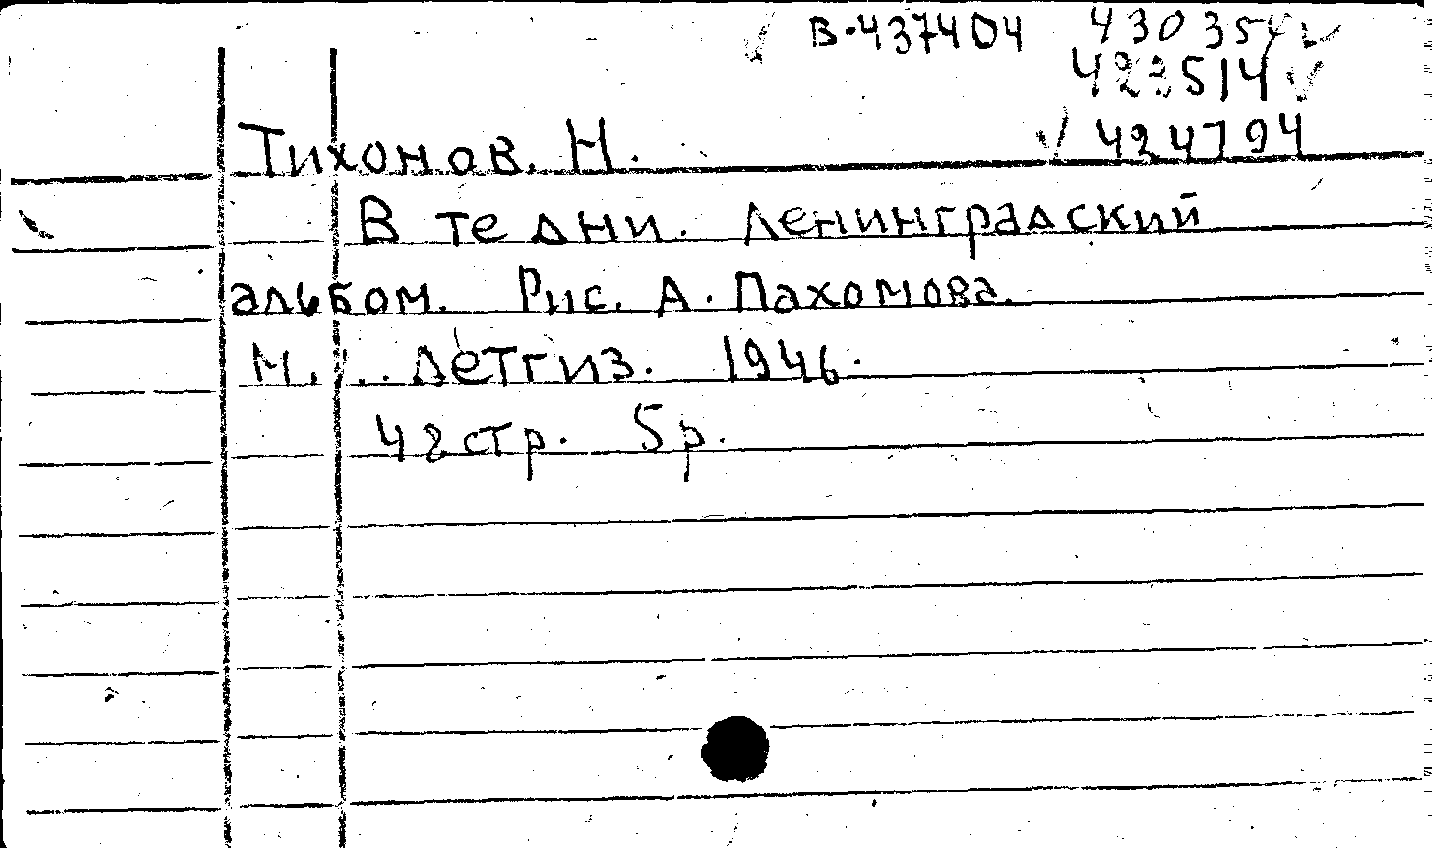 В.437404 430354
423514
424794
Тихонов. Н.
В те дни. Ленинградский
альбом. Рис. А. Пахомова.
М. . . Детгиз. 1946.
42стр. 5р.